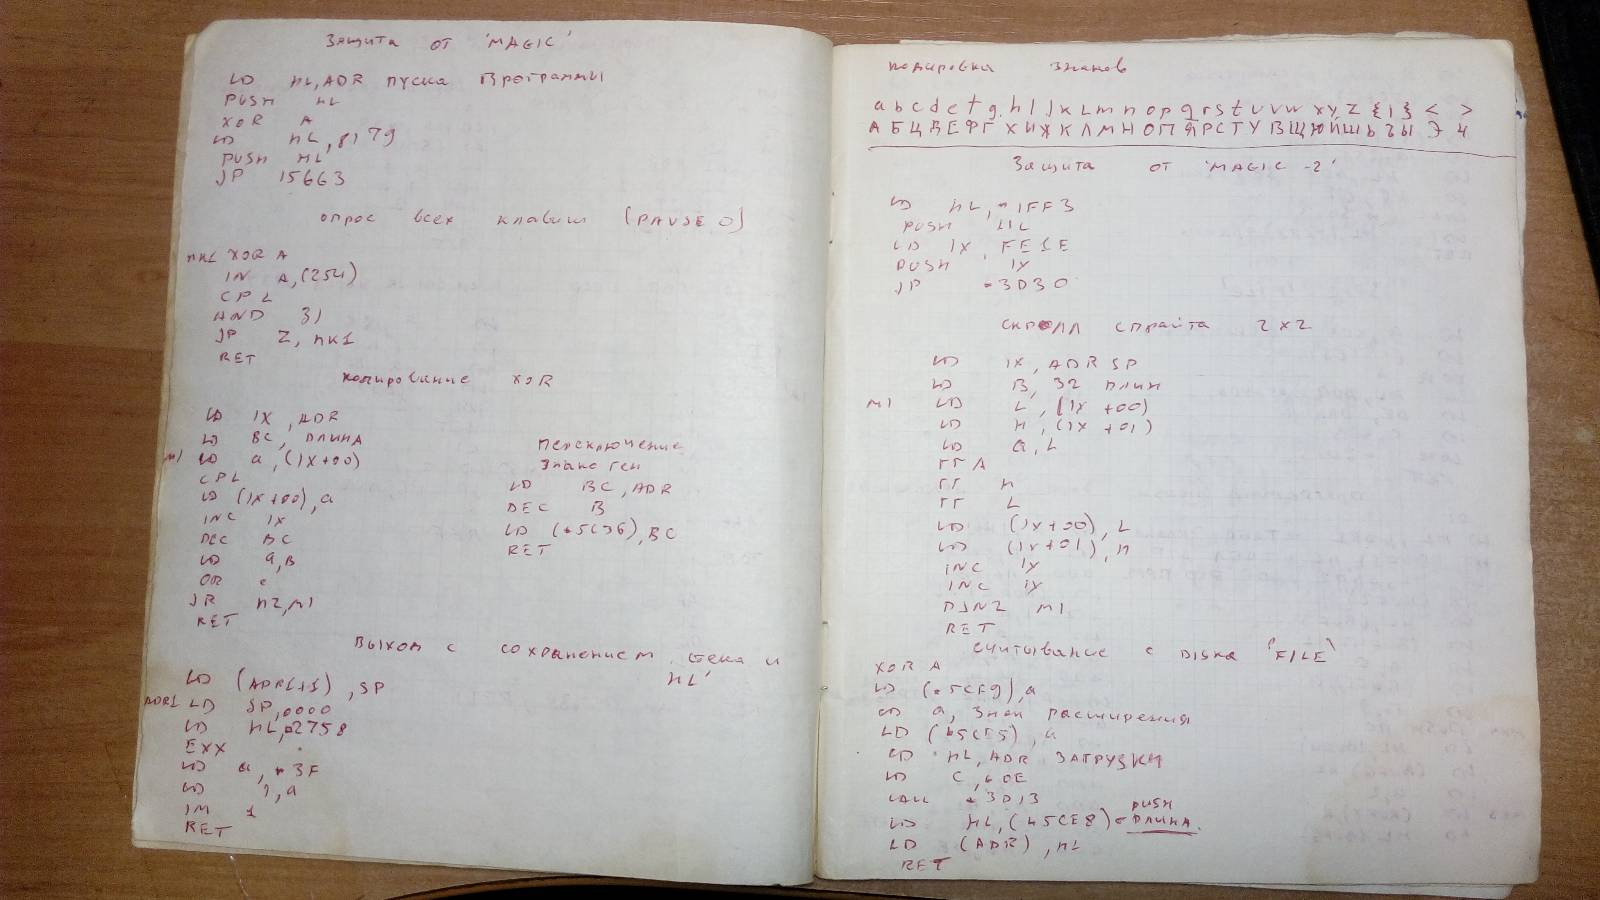 Защита от 'MAGIC'
LD HL,ADR пуска программы
PUSH HL
XOR A
LD HL,8179
PUSH HL
JP 15663
опрос всех клавиш (PAUSE 0)
ПК1 XOR A
IN A,(254)
CPL
AND 31
JP Z, ПК1
RET
кодирование XOR
LD IX, ADR
LD BC, ДЛИНА
м1 LD a,(IX+00)
CPL
LD (IX+00),a
INC IX
DEC BC
LD a,B
OR c
JR NZ,м1
RET
Переключение
Знакоген
LD BC,ADR
DEC B
LD (#5C36),BC
RET
Выход с сохранением стека и
HL'
LD (ADR1+1),SP
ADR1 LD SP,0000
LD HL,#2758
EXX
LD a,#3F
LD I,a
IM 1
RET
кодировка знаков
a b c d e f g h i j k l m n o p q r s t u v w x y z { | } < >
А Б Ц Д Е Ф Г Х И Ж К Л М Н О П Я Р С Т У В Щ Ю Й Ш Ь Ъ Ы Э Ч
Защита от 'MAGIC -2'
LD HL,#1FF3
PUSH HL
LD IX, FE1E
PUSH IX
JP #3D30
скролл спрайта 2x2
LD IX, ADR SP
LD B, 32 ДЛИН
м1 LD L,(IX+00)
LD H,(IX+01)
LD a,L
RRA
RR H
RR L
LD (IX+00),L
LD (IX+01),H
INC IX
INC IX
DJNZ м1
RET
считывание с DISKa 'FILE'
XOR A
LD (#5CF9),a
LD a, Знак расширения
LD (#5CE5),a
LD HL,ADR ЗАГРУЗКИ
LD C,#0E
CALL #3D13
LD HL,(#5CE8) - PUSH ДЛИНА.
LD (ADR),HL
RET